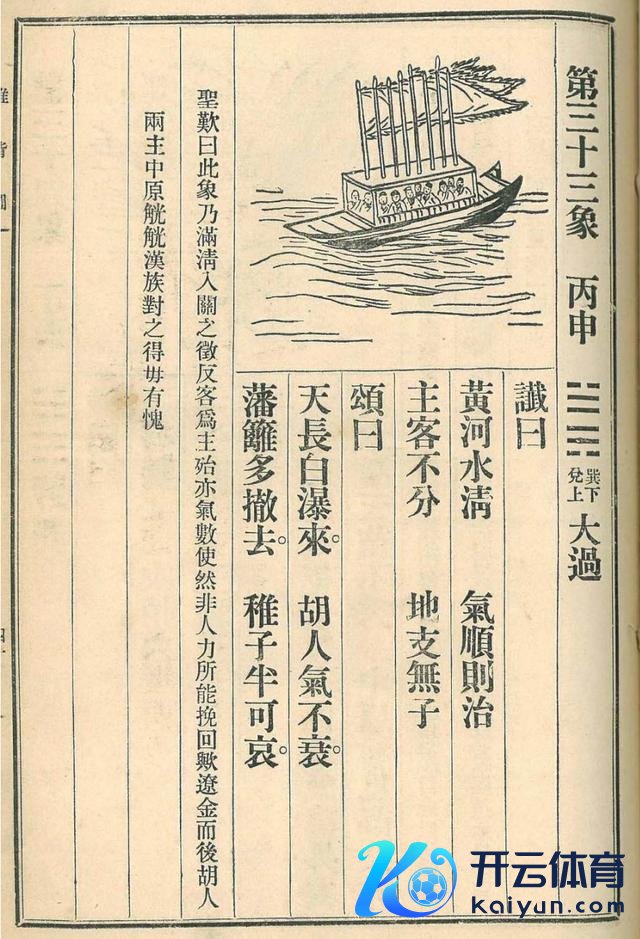 第三十三象 丙申 巽下兌上 大過
讖曰
黃河水清 氣順則治
主客不分 地支無子
頌曰
天長白瀑來。胡人氣不衰。
藩籬多撤去。稚子半可哀。
聖歎曰此象乃滿清入關之徵反客為主殆亦氣數使然非人力所能挽回歟遼金而後胡人
兩主中原觥觥漢族對之得毋有愧
开云体育
kaiyun.com